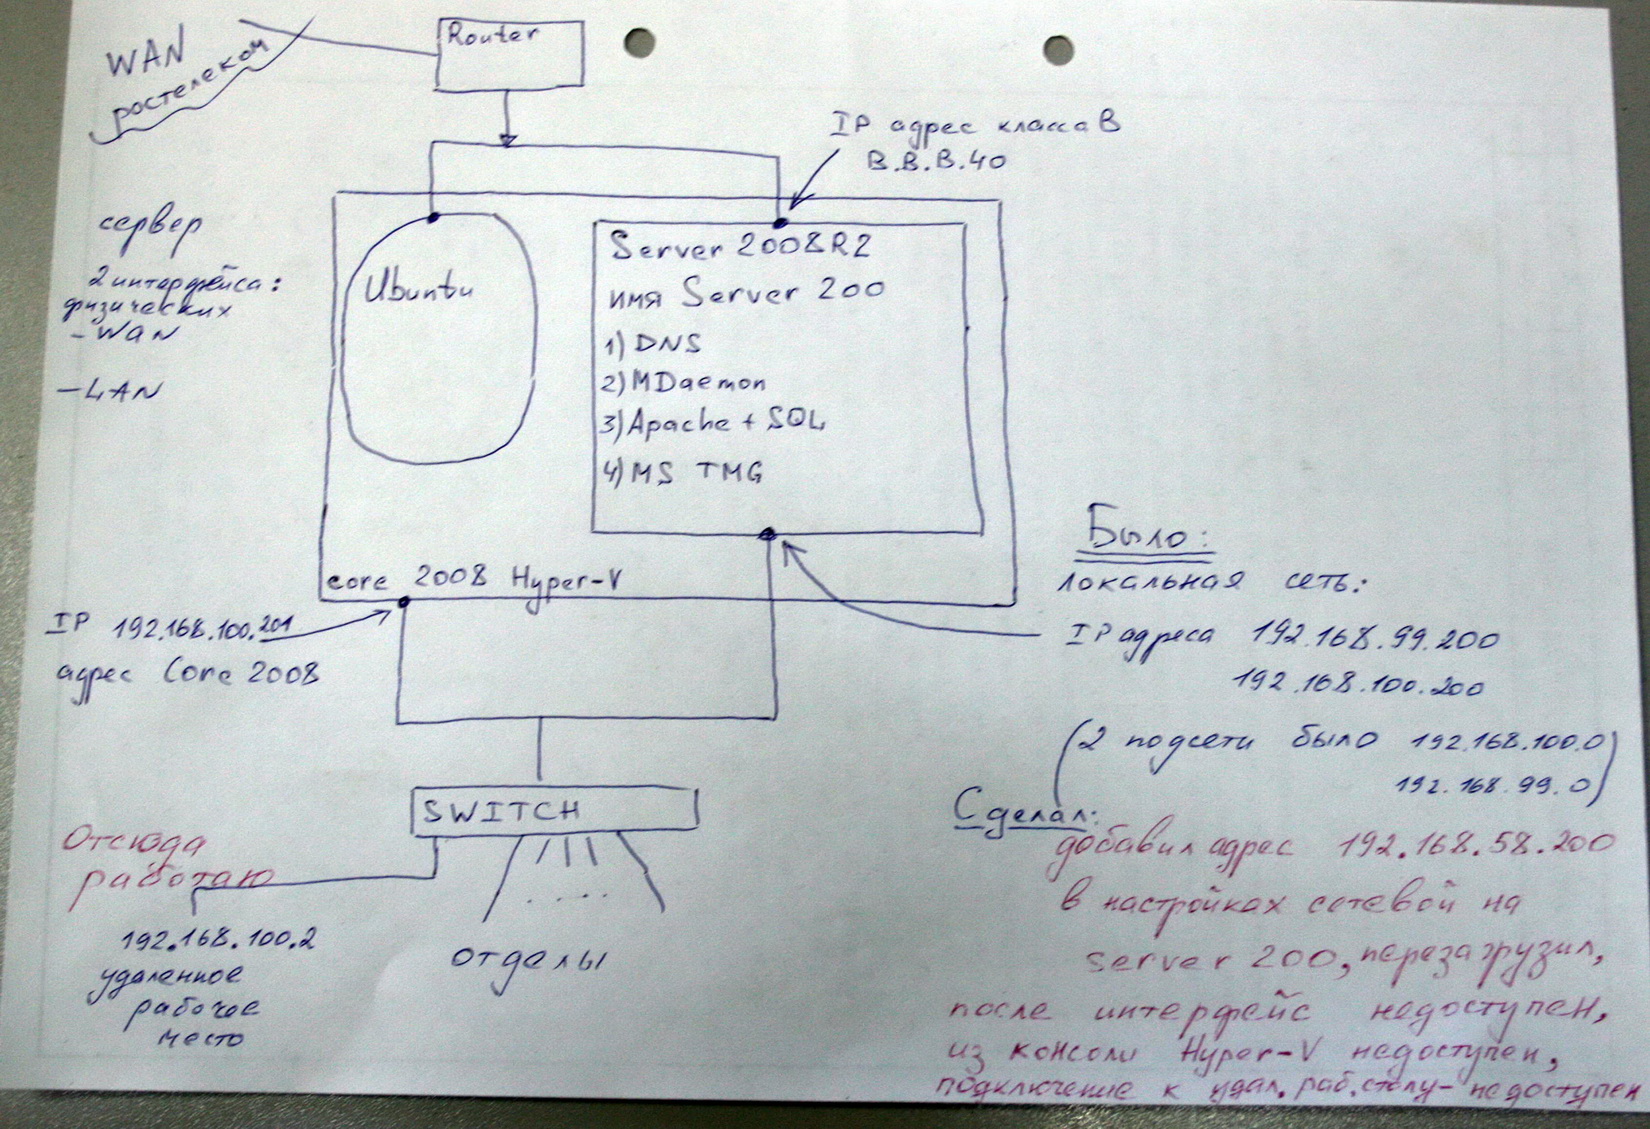 WAN
ростелеком
Router
IP адрес класса B
B.B.B.40
сервер
2 интерфейса:
физических
- WAN
- LAN
Ubuntu
Server 2008R2
имя Server 200
1) DNS
2) MDaemon
3) Apache + SQL
4) MS TMG
core 2008 Hyper-V
IP 192.168.100.201
адрес Core 2008
Было:
локальная сеть:
IP адреса 192.168.99.200
192.168.100.200
(2 подсети было 192.168.100.0
192.168.99.0)
SWITCH
Отсюда
работаю
192.168.100.2
удаленное
рабочее
место
отделы
Сделал:
добавил адрес 192.168.58.200
в настройках сетевой на
server 200, перезагрузил,
после интерфейс недоступен,
из консоли Hyper-V недоступен,
подключение к удал. раб. столу - недоступен